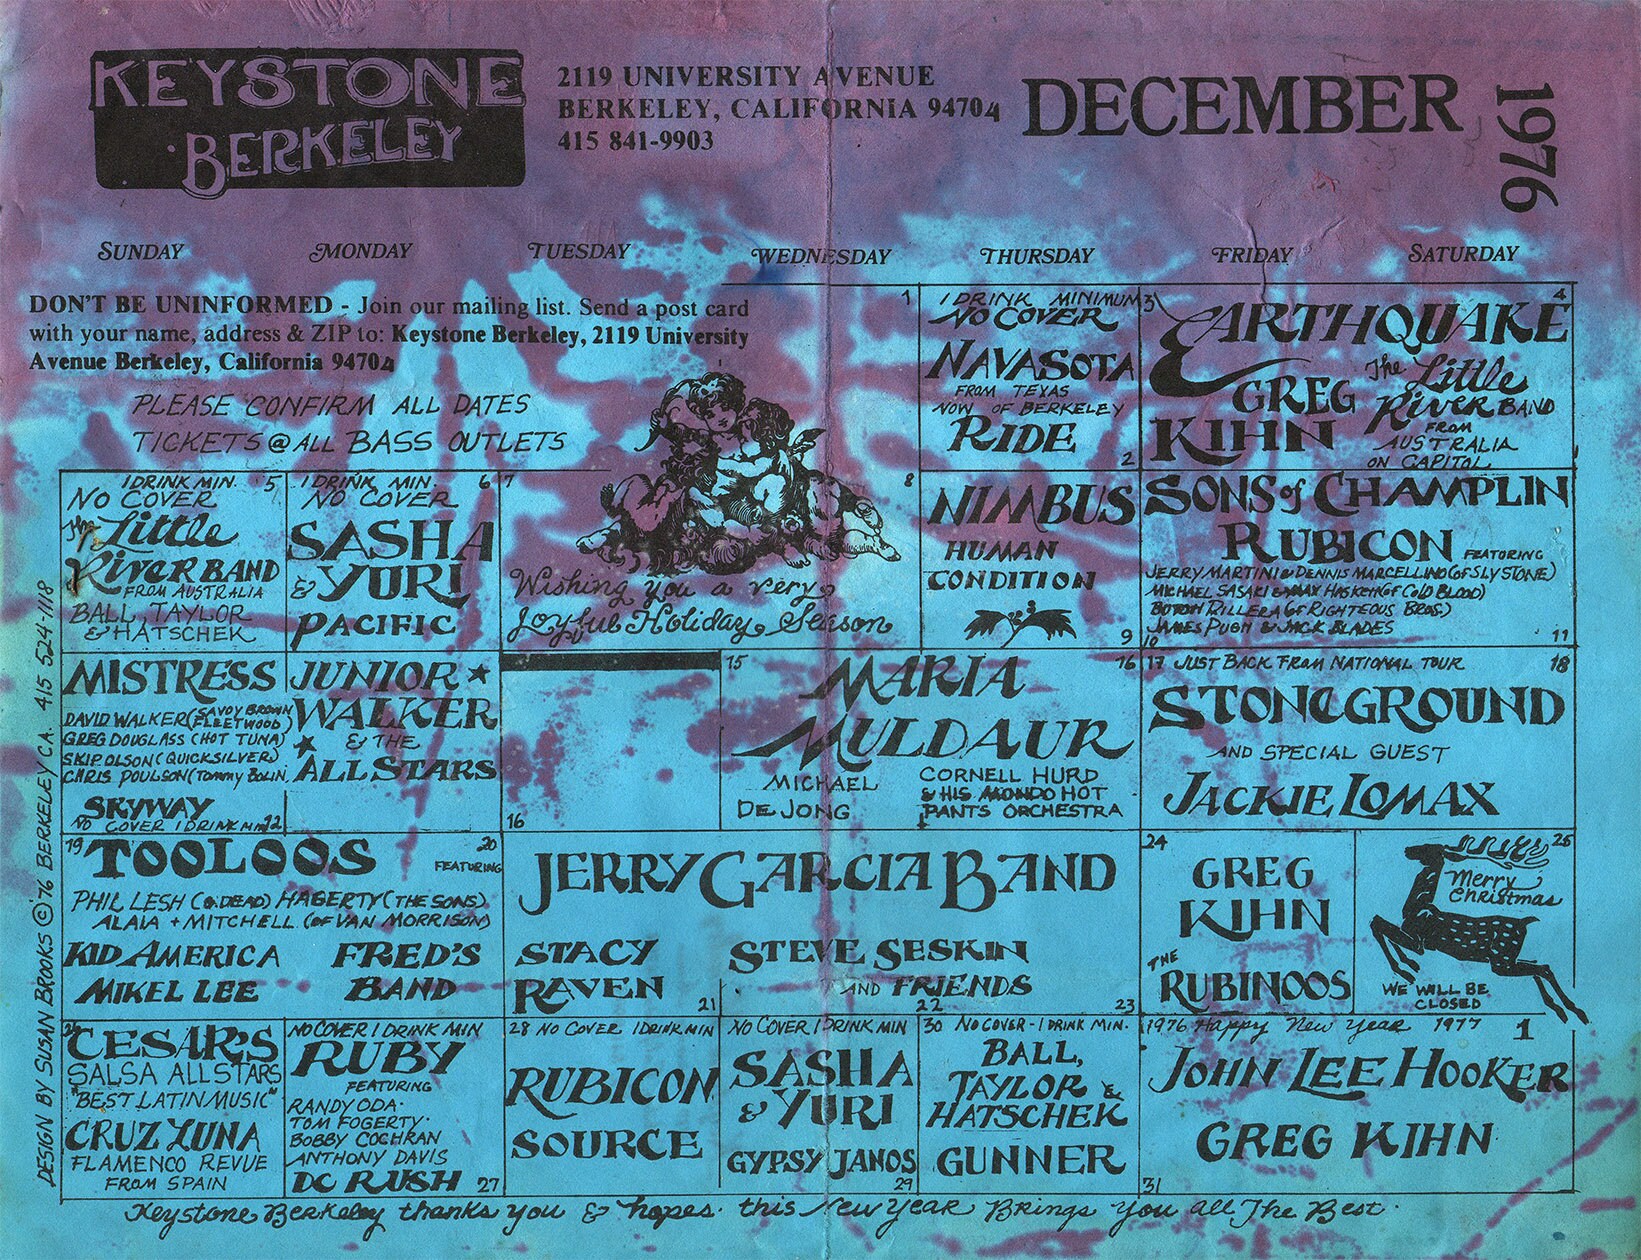 KEYSTONE
BERKELEY
2119 UNIVERSITY AVENUE
BERKELEY, CALIFORNIA 94704
415 841-9903
DECEMBER
1976
SUNDAY MONDAY TUESDAY WEDNESDAY THURSDAY FRIDAY SATURDAY
DON'T BE UNINFORMED - Join our mailing list. Send a post card
with your name, address & ZIP to: Keystone Berkeley, 2119 University
Avenue Berkeley, California 94704
PLEASE CONFIRM ALL DATES
TICKETS @ ALL BASS OUTLETS
1
1 DRINK MINIMUM
NO COVER
NAVASOTA
FROM TEXAS
NOW OF BERKELEY
RIDE
2
3
4
EARTHQUAKE
GREG
KIHN
The Little
River BAND
FROM
AUSTRALIA
ON CAPITOL
1 DRINK MIN. 5
NO COVER
The Little
River BAND
FROM AUSTRALIA
BALL, TAYLOR
& HATSCHEK
1 DRINK MIN. 6
NO COVER
SASHA
& YURI
PACIFIC
7
8
Wishing you a very
Joyful Holiday Season
NIMBUS
HUMAN
CONDITION
9
SONS of CHAMPLIN
RUBICON FEATURING
JERRY MARTINI & DENNIS MARCELLINO (of SLY STONE)
MICHAEL SASAKI & MAX HASKETT (of COLD BLOOD)
BOTON RILLERA (of RIGHTEOUS BROS.)
JAMES PUGH & JACK BLADES
10
11
MISTRESS
DAVID WALKER (SAVOY BROWN
FLEETWOOD)
GREG DOUGLASS (HOT TUNA)
SKIP OLSON (QUICKSILVER)
CHRIS POULSON (Tommy BOLIN)
SKYWAY
NO COVER 1 DRINK MIN 12
JUNIOR
WALKER
& THE
ALL STARS
16
15
16
MARIA
MULDAUR
MICHAEL
DE JONG
CORNELL HURD
& HIS MONDO HOT
PANTS ORCHESTRA
17 JUST BACK FROM NATIONAL TOUR 18
STONEGROUND
AND SPECIAL GUEST
JACKIE LOMAX
19
20
TOOLOOS
FEATURING
PHIL LESH (G.DEAD) HAGERTY (THE SONS)
ALAIA + MITCHELL (OF VAN MORRISON)
KID AMERICA
MIKEL LEE
FRED'S
BAND
JERRY GARCIA BAND
STACY
RAVEN
21
STEVE SESKIN
AND FRIENDS
22
23
24
GREG
KIHN
THE
RUBINOOS
25
Merry
Christmas
WE WILL BE
CLOSED
CESAR'S
SALSA ALLSTARS
"BEST LATIN MUSIC"
CRUZ LUNA
FLAMENCO REVUE
FROM SPAIN
NO COVER 1 DRINK MIN
RUBY
FEATURING
RANDY ODA·
TOM FOGERTY·
BOBBY COCHRAN
ANTHONY DAVIS
DC RUSH 27
28 NO COVER 1 DRINK MIN
RUBICON
SOURCE
NO COVER 1 DRINK MIN
SASHA
& YURI
GYPSY JANOS
29
30 NO COVER - 1 DRINK MIN.
BALL,
TAYLOR &
HATSCHEK
GUNNER
1976 Happy New Year 1977 1
JOHN LEE HOOKER
GREG KIHN
31
Keystone Berkeley thanks you & hopes this New Year Brings You all The Best.
DESIGN BY SUSAN BROOKS © '76 BERKELEY CA. 415 524-1118